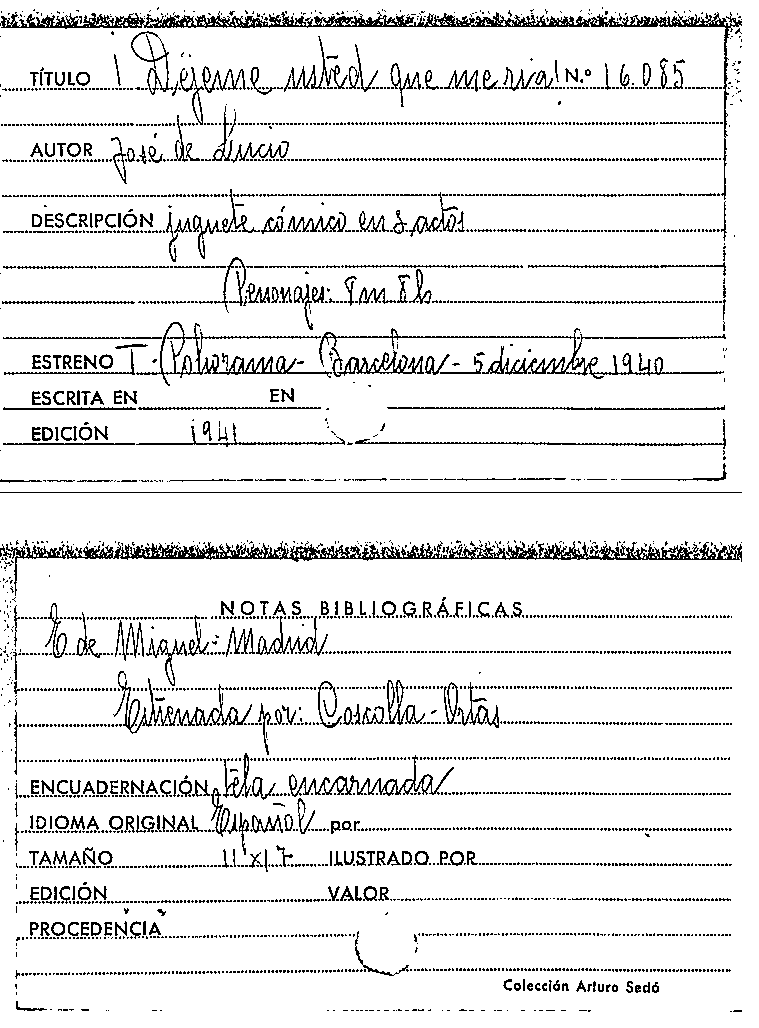 TÍTULO ¡Déjeme usted que me ria! N.º 16.085
AUTOR José de Lucio
DESCRIPCIÓN juguete cómico en 3 actos
Personajes: 8 m 8 h
ESTRENO T. Poliorama - Barcelona - 5 diciembre 1940
ESCRITA EN EN
EDICIÓN 1941
NOTAS BIBLIOGRÁFICAS
E de Miguel = Madrid
Estrenada por: Cascalla - Ortas
ENCUADERNACIÓN tela encarnada
IDIOMA ORIGINAL Español por
TAMAÑO 11'x17 ILUSTRADO POR
EDICIÓN VALOR
PROCEDENCIA
Colección Arturo Sedó